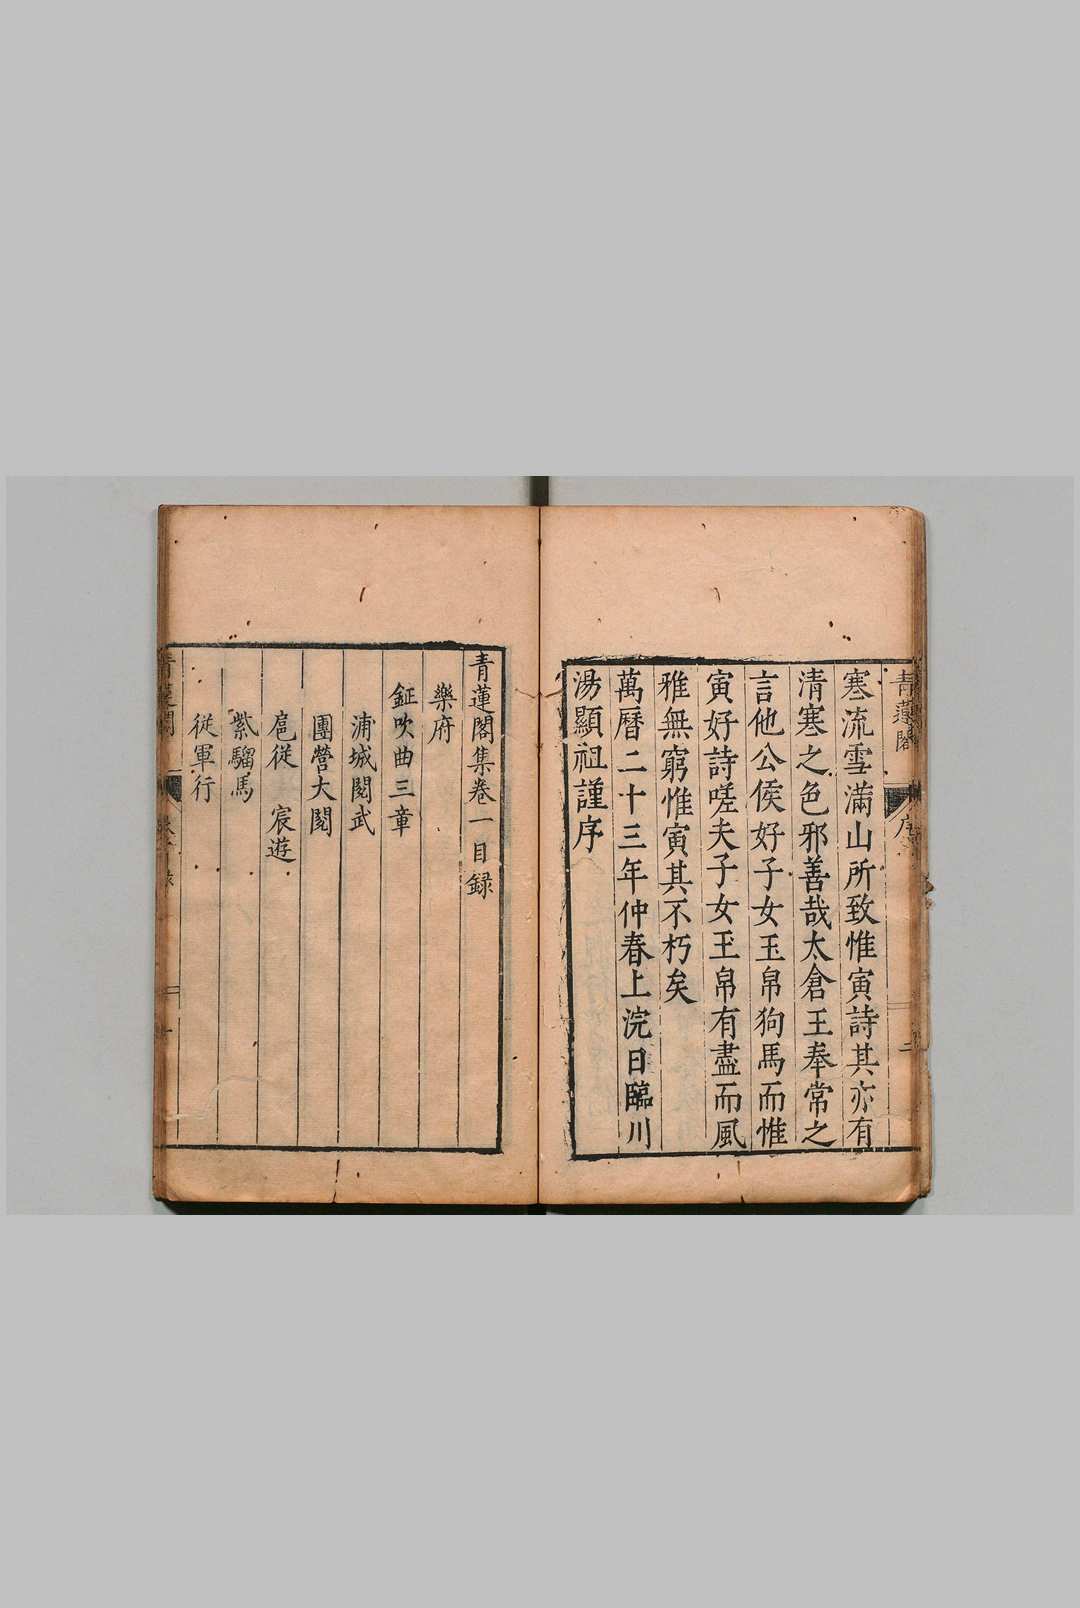 青蓮閣
序
二
寒流雪滿山所致惟寅詩其亦有
清寒之色邪善哉太倉王奉常之
言他公侯好子女玉帛狗馬而惟
寅好詩嗟夫子女玉帛有盡而風
雅無窮惟寅其不朽矣
萬曆二十三年仲春上浣日臨川
湯顯祖謹序
青蓮閣集卷一目録
樂府
鉦吹曲三章
浦城閱武
團營大閱
扈從 宸遊
紫騮馬
從軍行
青蓮閣